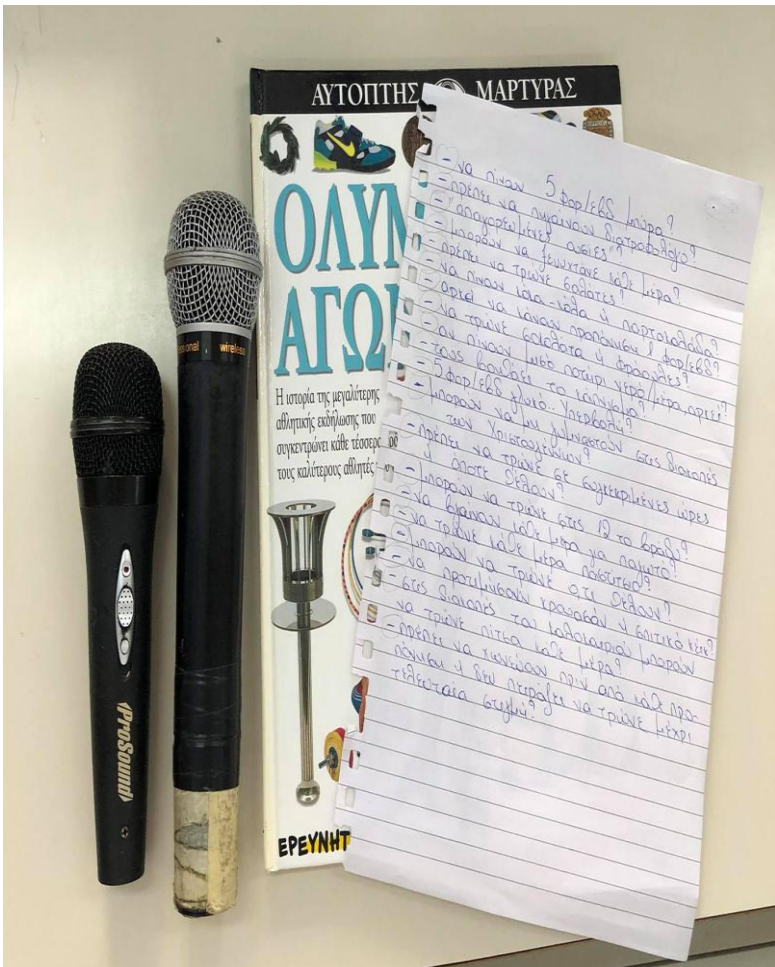 ΑΥΤΟΠΤΗΣ ΜΑΡΤΥΡΑΣ
ΟΛΥΜ
ΑΓΩ
Η ιστορία της μεγαλύτερης
αθλητικής εκδήλωσης που
συγκεντρώνει κάθε τέσσερα
τους καλύτερους αθλητές
ΕΡΕΥΝΗΤ
wireless
ProSound
- να πίνουν 5 φορ/εβδ μπύρα?
- πρέπει να πηγαίνουν διατροφολόγο?
- "απαγορευμένες ουσίες"?
- μπορούν να ξενυχτάνε κάθε μέρα?
- πρέπει να τρώνε σαλάτες?
- να πίνουν κόκα-κόλα ή πορτοκαλάδα?
- αρκεί να κάνουν προπόνηση 1 φορ/εβδ?
- να τρώνε σοκολάτα ή φράουλες?
- αν πίνουν μισό ποτήρι νερό/μέρα, αρκεί?
- τους βοηθάει το κάπνισμα?
- 5 φορ/εβδ γλυκό.. Υπερβολή?
- μπορούν να μη γυμναστούν στις διακοπές
των Χριστουγέννων?
- πρέπει να τρώνε σε συγκεκριμένες ώρες
ή όποτε θέλουν?
- μπορούν να τρώνε στις 12 το βράδυ?
- να βγαίνουν κάθε μέρα για παγωτό?
- να τρώνε κάθε μέρα ποπ
- μπορούν να τρώνε ότι θέλουν?
- να προτιμήσουν κρουασάν ή σπιτικό κέικ?
- στις διακοπές του καλοκαιριού μπορούν
να τρώνε πίτσα κάθε μέρα?
- πρέπει να χωνεύουν πριν από κάθε προ-
πόνηση ή δεν πειράζει να τρώνε μέχρι
τελευταία στιγμή?